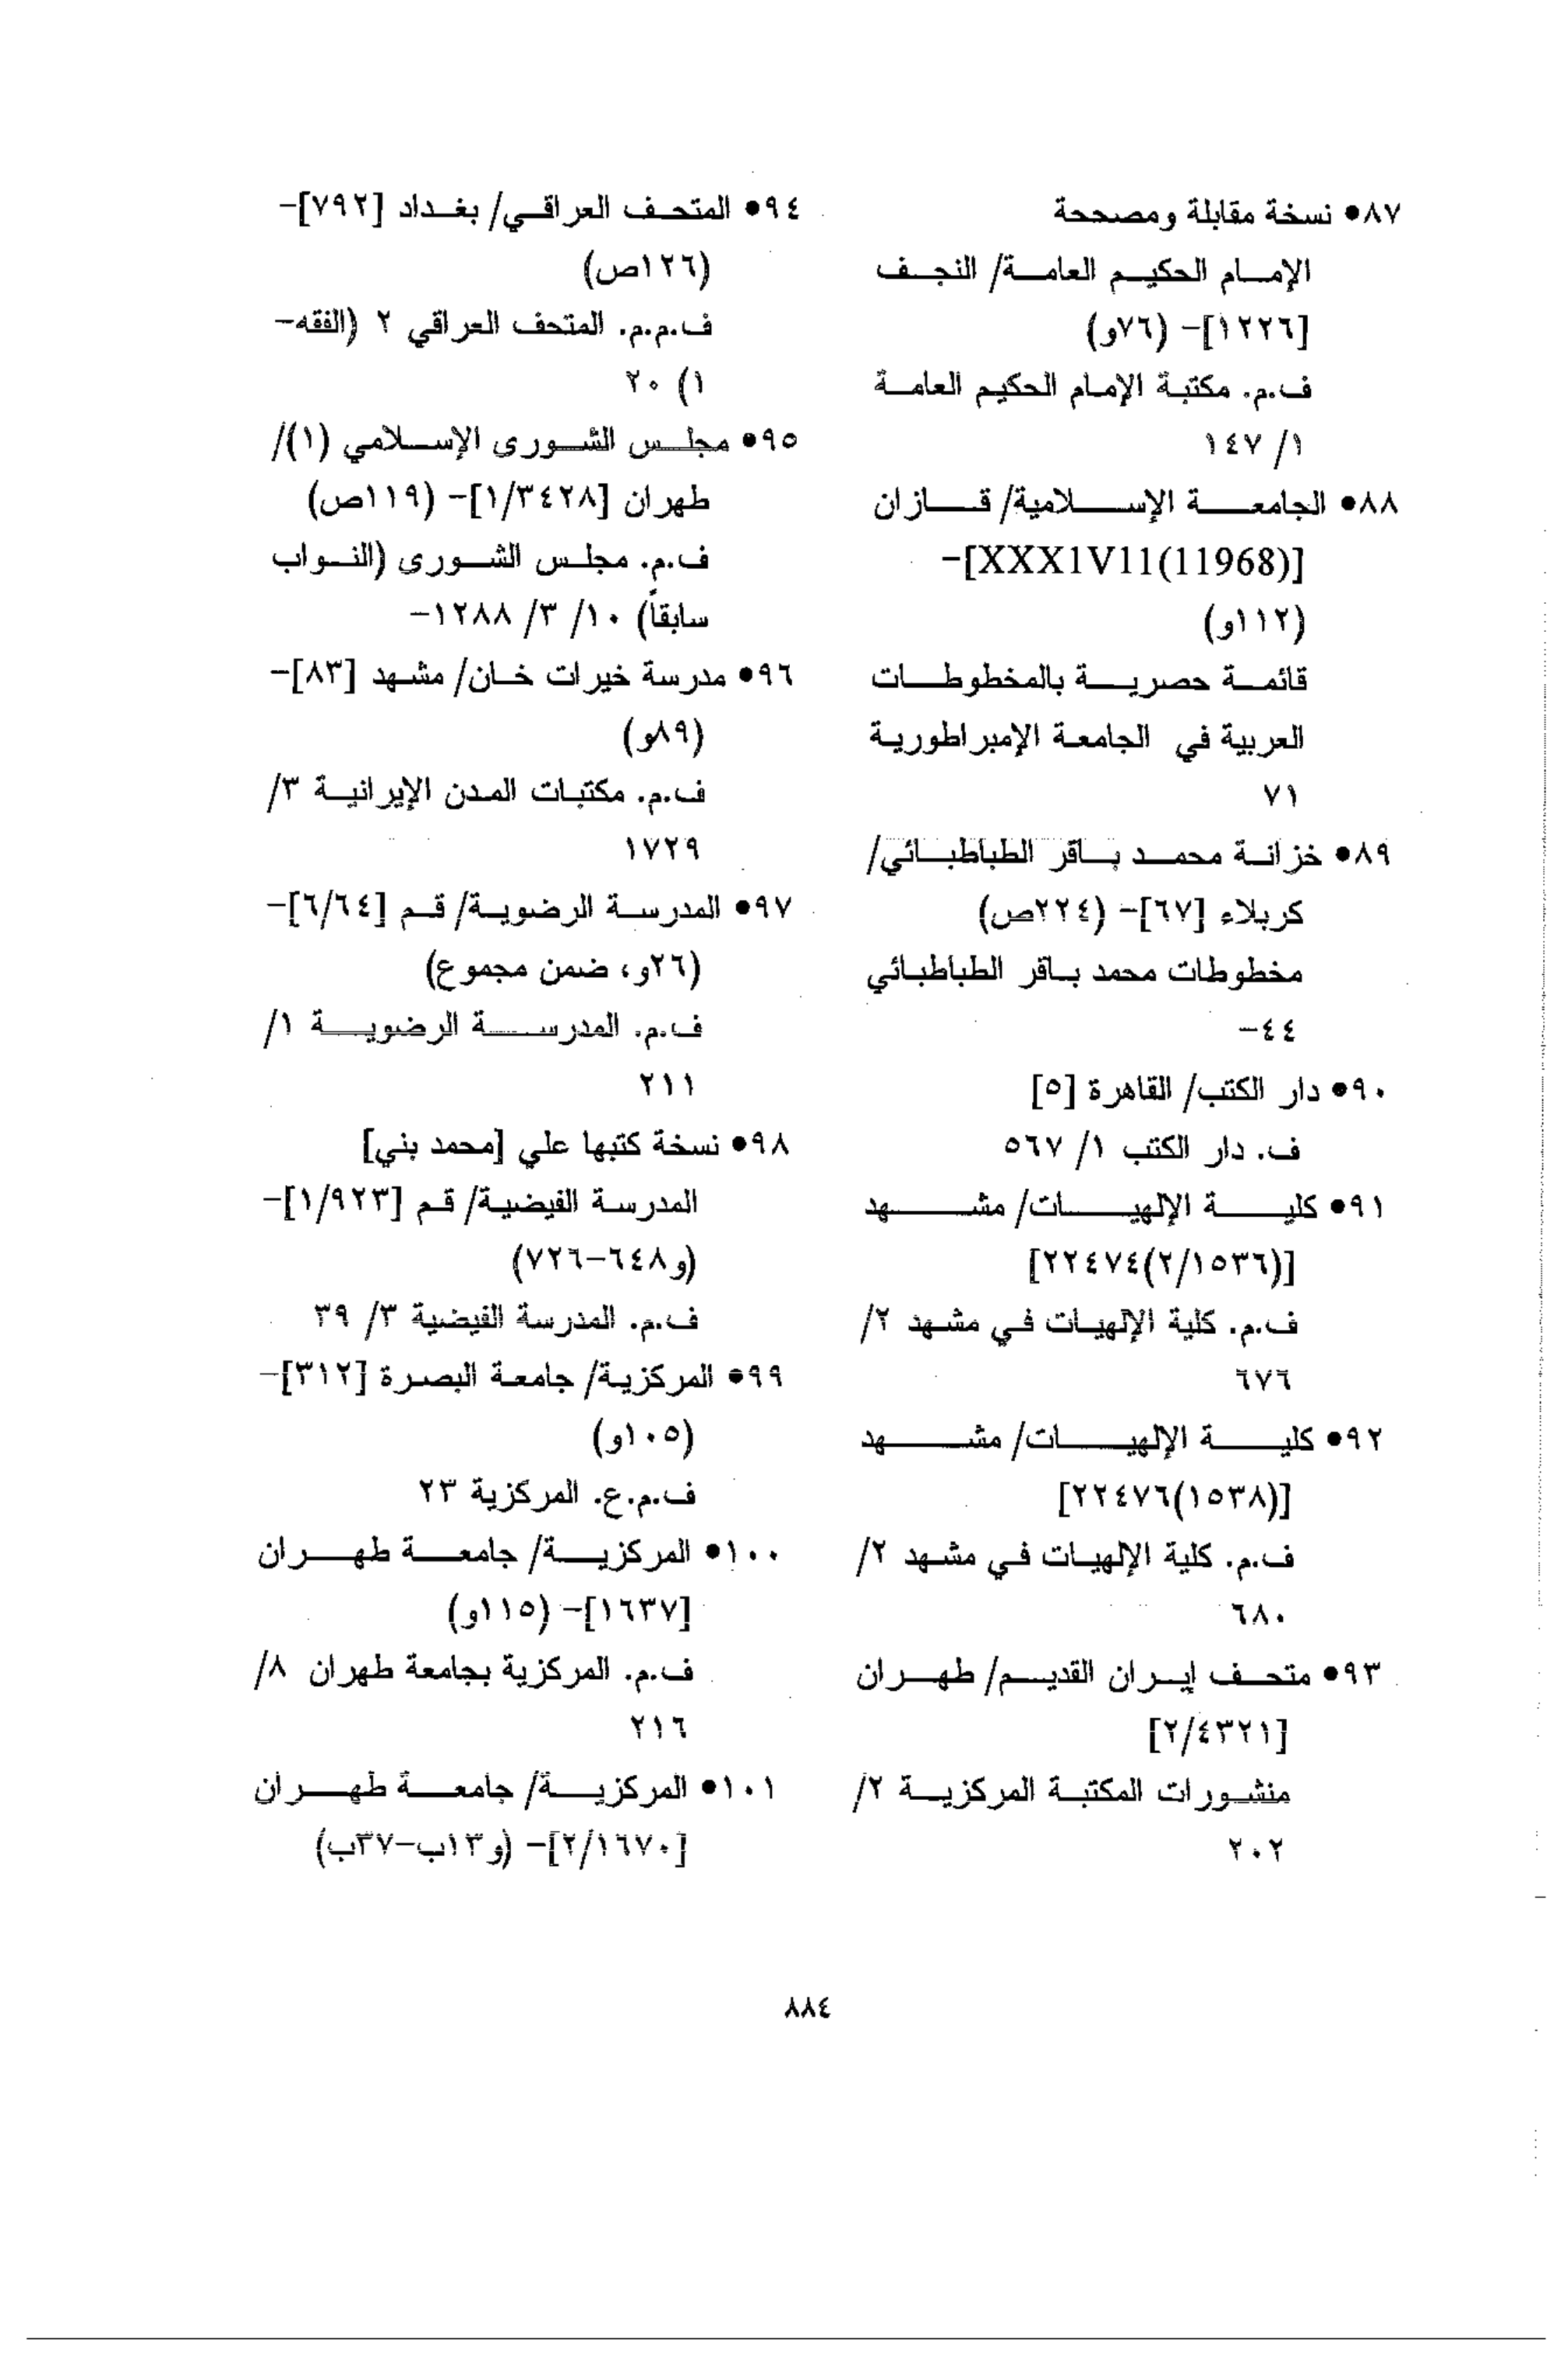 ٨٧● نسخة مقابلة ومصححة
الإمام الحكيم العامة/ النجف
[١٢٢٦]- (٧٦و)
ف.م. مكتبة الإمام الحكيم العامة
١/ ١٤٧
٨٨● الجامعة الإسلامية/ قازان
[XXX1V11(11968)]-
(١١٢و)
قائمة حصرية بالمخطوطات
العربية في الجامعة الإمبراطورية
٧١
٨٩● خزانة محمد باقر الطباطبائي/
كربلاء [٦٧]- (٢٢٤ص)
مخطوطات محمد باقر الطباطبائي
٤٤-
٩٠● دار الكتب/ القاهرة [٥]
ف. دار الكتب ١/ ٥٦٧
٩١● كلية الإلهيات/ مشهد
[(٢/١٥٣٦)٢٢٤٧٤]
ف.م. كلية الإلهيات في مشهد ٢/
٦٧٦
٩٢● كلية الإلهيات/ مشهد
[(١٥٣٨)٢٢٤٧٦]
ف.م. كلية الإلهيات في مشهد ٢/
٦٨٠
٩٣● متحف إيران القديم/ طهران
[٢/٤٣٢١]
منشورات المكتبة المركزية ٢/
٢٠٢
٩٤● المتحف العراقي/ بغداد [٧٩٢]-
(١٢٦ص)
ف.م.م. المتحف العراقي ٢ (الفقه-
١) ٢٠
٩٥● مجلس الشورى الإسلامي (١)/
طهران [١/٣٤٢٨]- (١١٩ص)
ف.م. مجلس الشورى (النواب
سابقاً) ١٠/ ٣/ ١٢٨٨-
٩٦● مدرسة خيرات خان/ مشهد [٨٣]-
(٨٩و)
ف.م. مكتبات المدن الإيرانية ٣/
١٧٢٩
٩٧● المدرسة الرضوية/ قم [٦/٦٤]-
(٢٦و، ضمن مجموع)
ف.م. المدرسة الرضوية ١/
٢١١
٩٨● نسخة كتبها علي [محمد بني]
المدرسة الفيضية/ قم [١/٩٢٣]-
(و٦٤٨-٧٢٦)
ف.م. المدرسة الفيضية ٣/ ٣٩
٩٩● المركزية/ جامعة البصرة [٣١٢]-
(١٠٥و)
ف.م.ع. المركزية ٢٣
١٠٠● المركزية/ جامعة طهران
[١٦٣٧]- (١١٥و)
ف.م. المركزية بجامعة طهران ٨/
٢١٦
١٠١● المركزية/ جامعة طهران
[٢/١٦٧٠]- (و١٣ب-٣٧ب)
٨٨٤